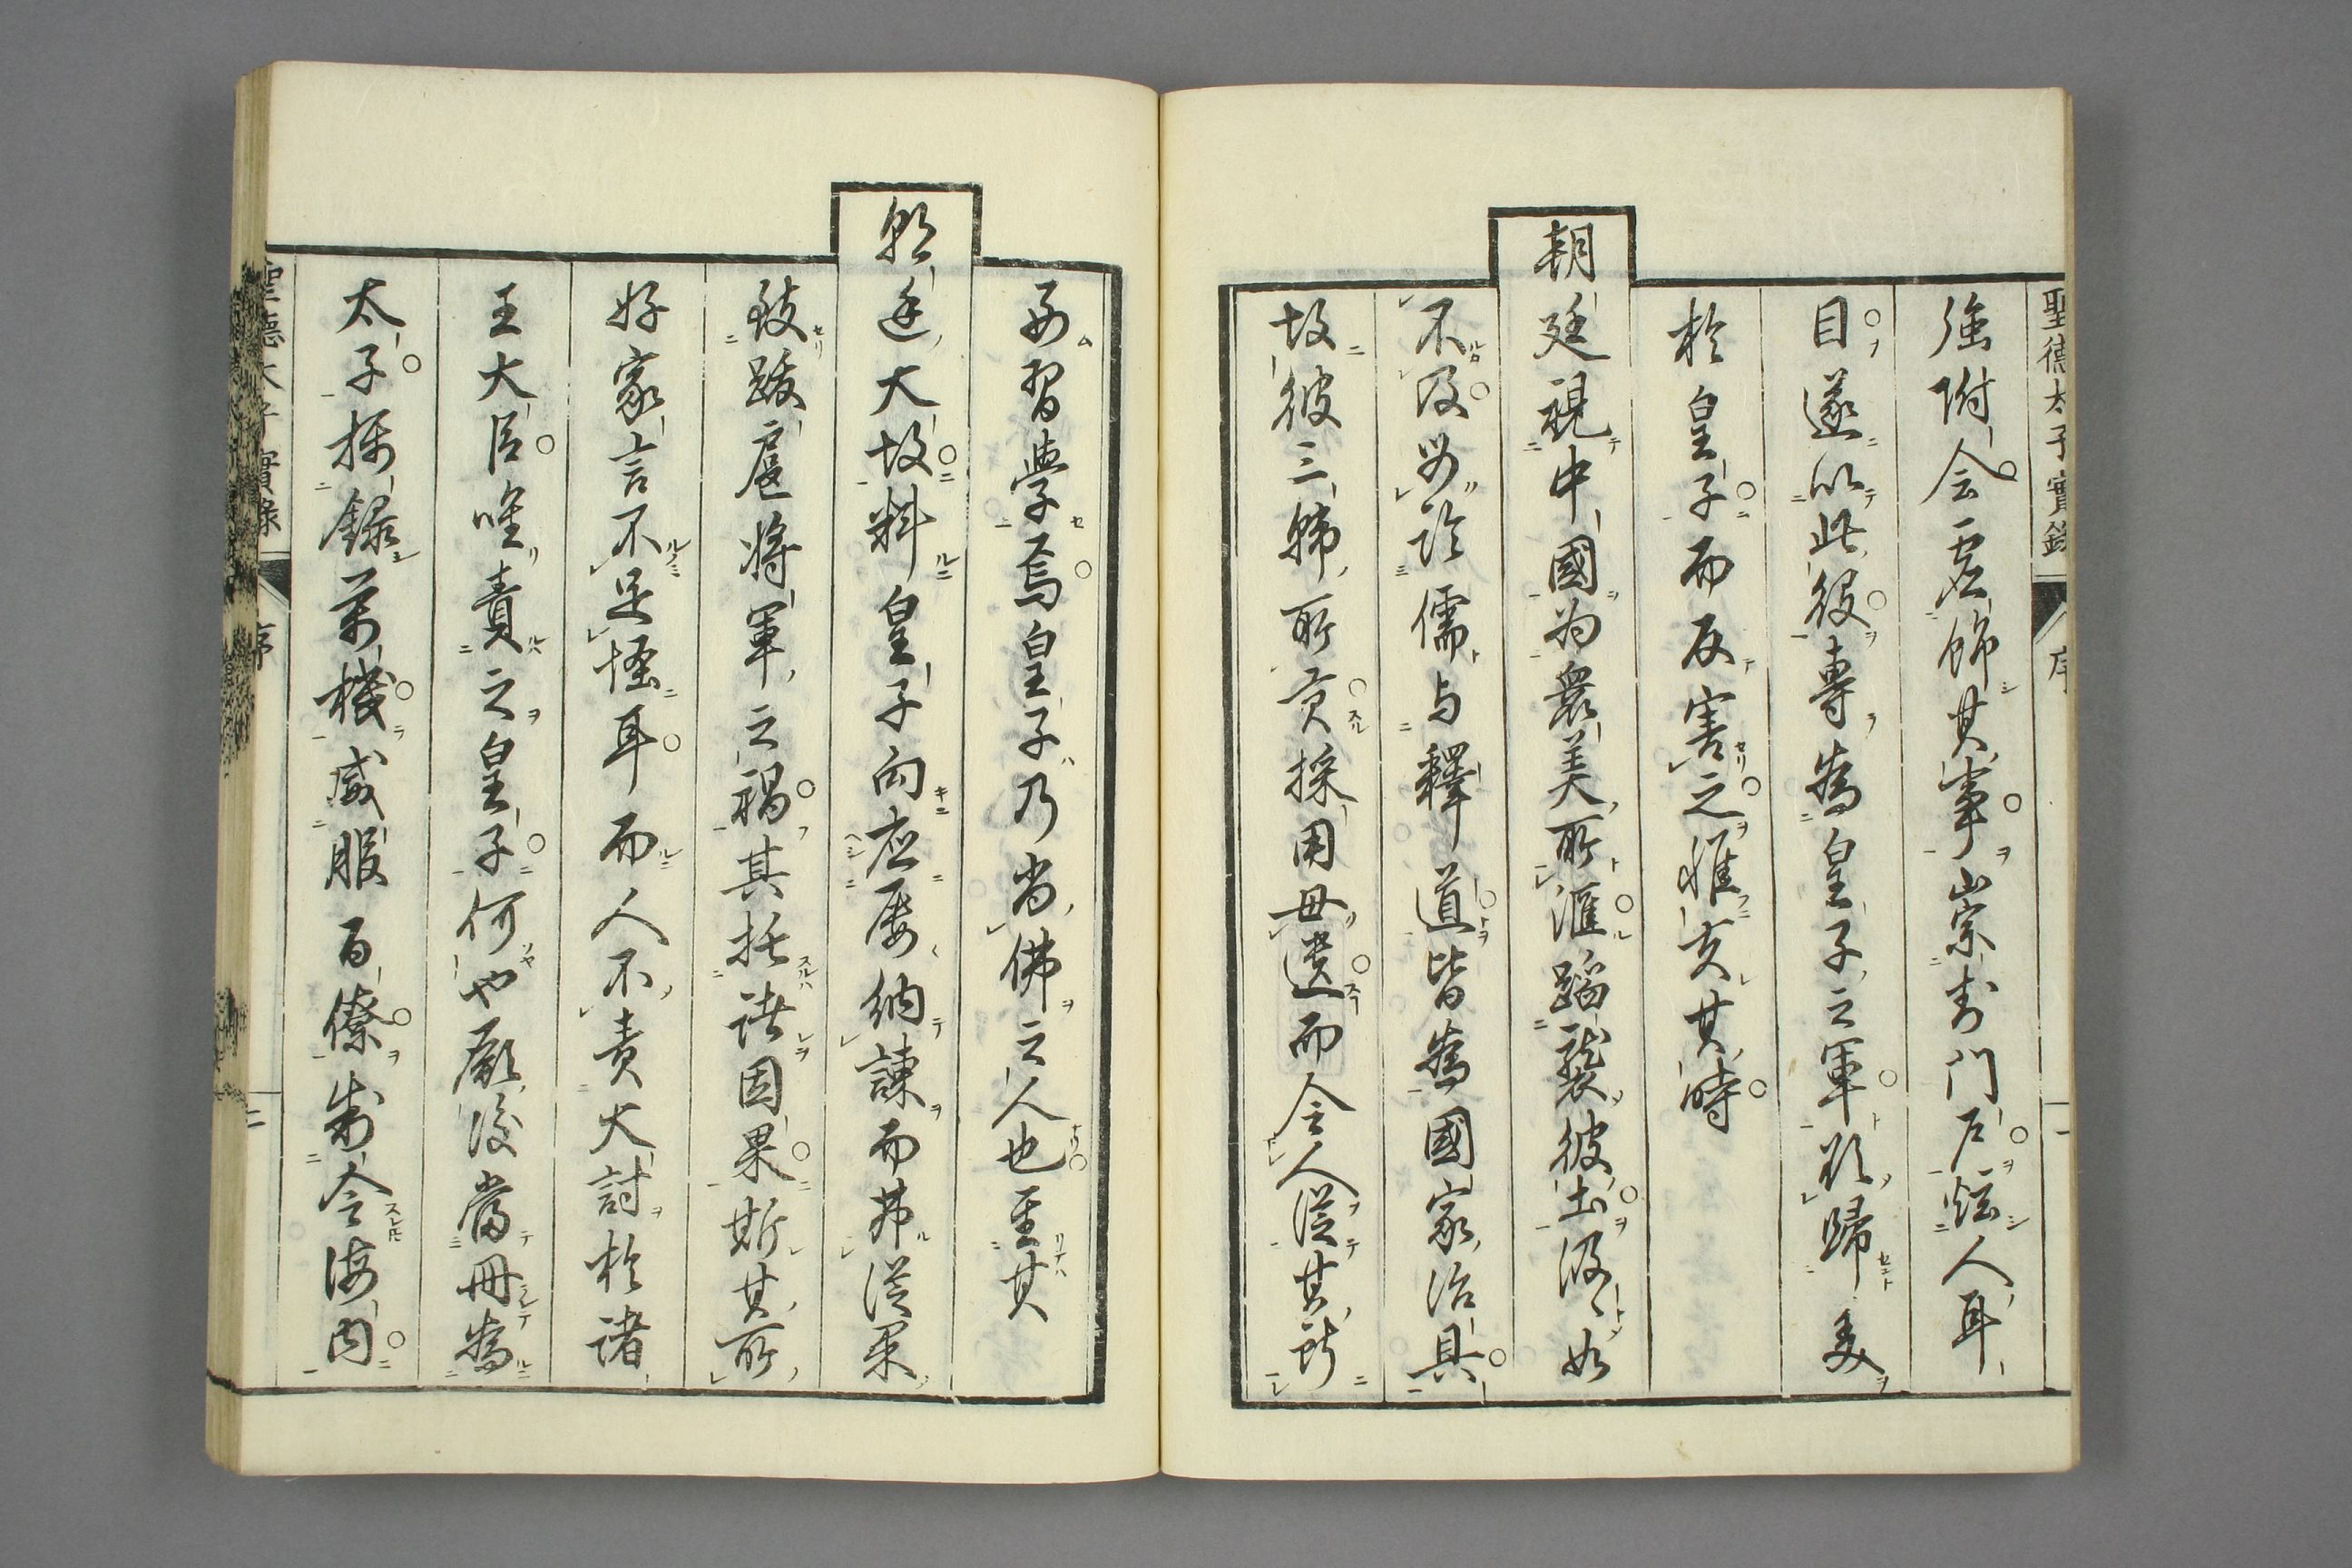 聖德太子實錄 序 一
強附会虚飾其事崇其门戸炫人耳
目遂以此役專為皇子之軍欲歸美
於皇子而反害之惟夫其時
朝廷視中國為衆美所滙蹈襲彼土汲々如
不及必謂儒与釋道皆為國家治具
故彼三韓所貢採用毋遺而令人從其所
好習學焉皇子乃尚佛之人也至其
朝廷大故料皇子固應屡納諫而弗從果
致跋扈將軍之禍其托諸因果斯其所
好家言不足怪耳而人不責大討於諸
王大臣唯責之皇子何也厥後當冊為
太子攝錄萬機咸服百僚制令海内
聖德太子實錄 序 二